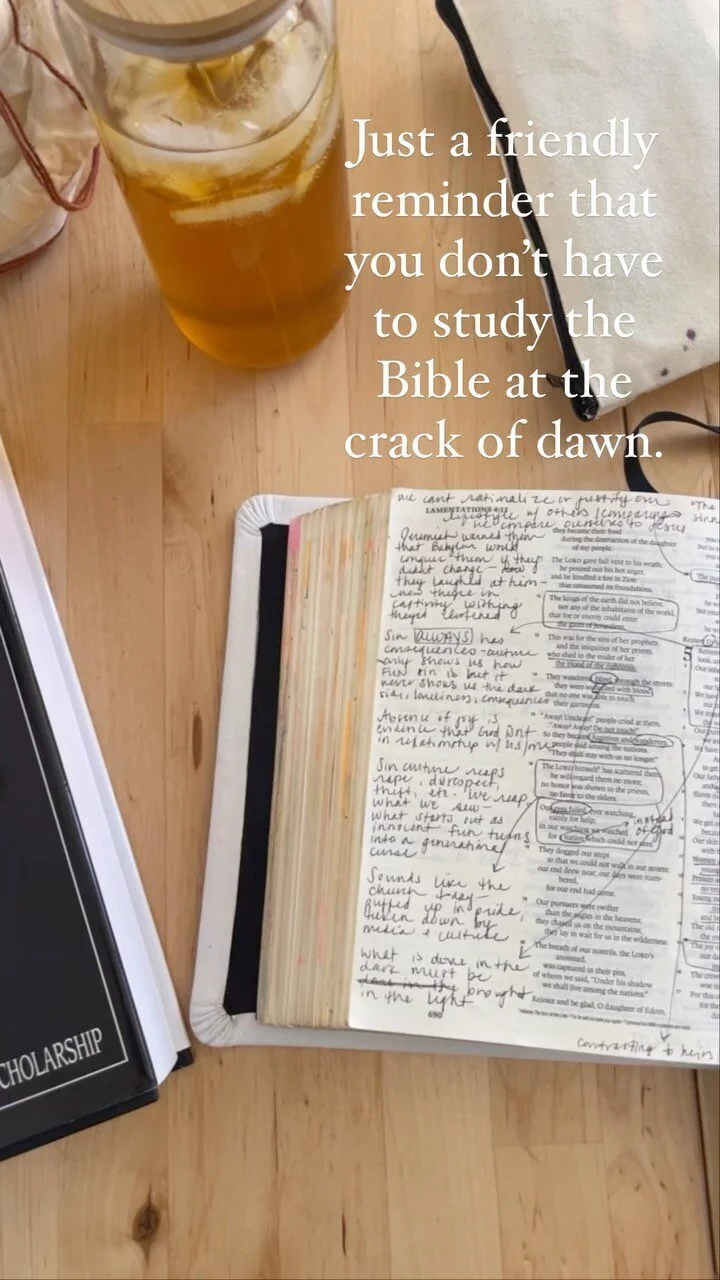 Just a friendly
reminder that
you don't have
to study the
Bible at the
crack of dawn.
we cant rationalize or justify our
lifestyle w/ others (comparing)
we compare ourselves to Jesus
LAMENTATIONS 4:11
Jeremiah warned them
that Babylon would
conquer them if they
didnt change
they laughed at him-
now theyre in
captivity wishing
theyed listened
Sin ALWAYS has
consequences-culture
only shows us how
fun sin is but it
never shows us the dark
side, loneliness, consequences
Absence of joy is
evidence that God isnt
in relationship w/ us/me
Sin culture reaps
rape, disrespect,
theft, etc. We reap
what we sew-
what starts out as
innocent fun turns
into a generational
curse
Sounds like the
church today-
puffed up in pride,
taken down by
media & culture
What is done in the
dark must be
brought
in the light
690
they became their food
during the destruction of the daughter
of my people.
The LORD gave full vent to his wrath;
he poured out his hot anger,
and he kindled a fire in Zion
that consumed its foundations.
The kings of the earth did not believe,
nor any of the inhabitants of the world,
that foe or enemy could enter
the gates of Jerusalem.
This was for the sins of her prophets
and the iniquities of her priests,
who shed in the midst of her
the blood of the righteous.
They wandered, blind, through the streets;
they were so defiled with blood
that no one was able to touch
their garments.
"Away! Unclean!" people cried at them.
"Away! Away! Do not touch!"
So they became fugitives and wanderers;
people said among the nations,
"They shall stay with us no longer."
The LORD himself has scattered them;
he will regard them no more;
no honor was shown to the priests,
no favor to the elders.
Our eyes failed, ever watching
vainly for help;
in our watching we watched
for a nation which could not save.
instead
of God
They dogged our steps
so that we could not walk in our streets;
our end drew near; our days were num-
bered,
for our end had come.
Our pursuers were swifter
than the eagles in the heavens;
they chased us on the mountains;
they lay in wait for us in the wilderness.
The breath of our nostrils, the LORD's
anointed,
was captured in their pits,
of whom we said, "Under his shadow
we shall live among the nations."
Rejoice and be glad, O daughter of Edom,
contrasting to heirs
5
CHOLARSHIP